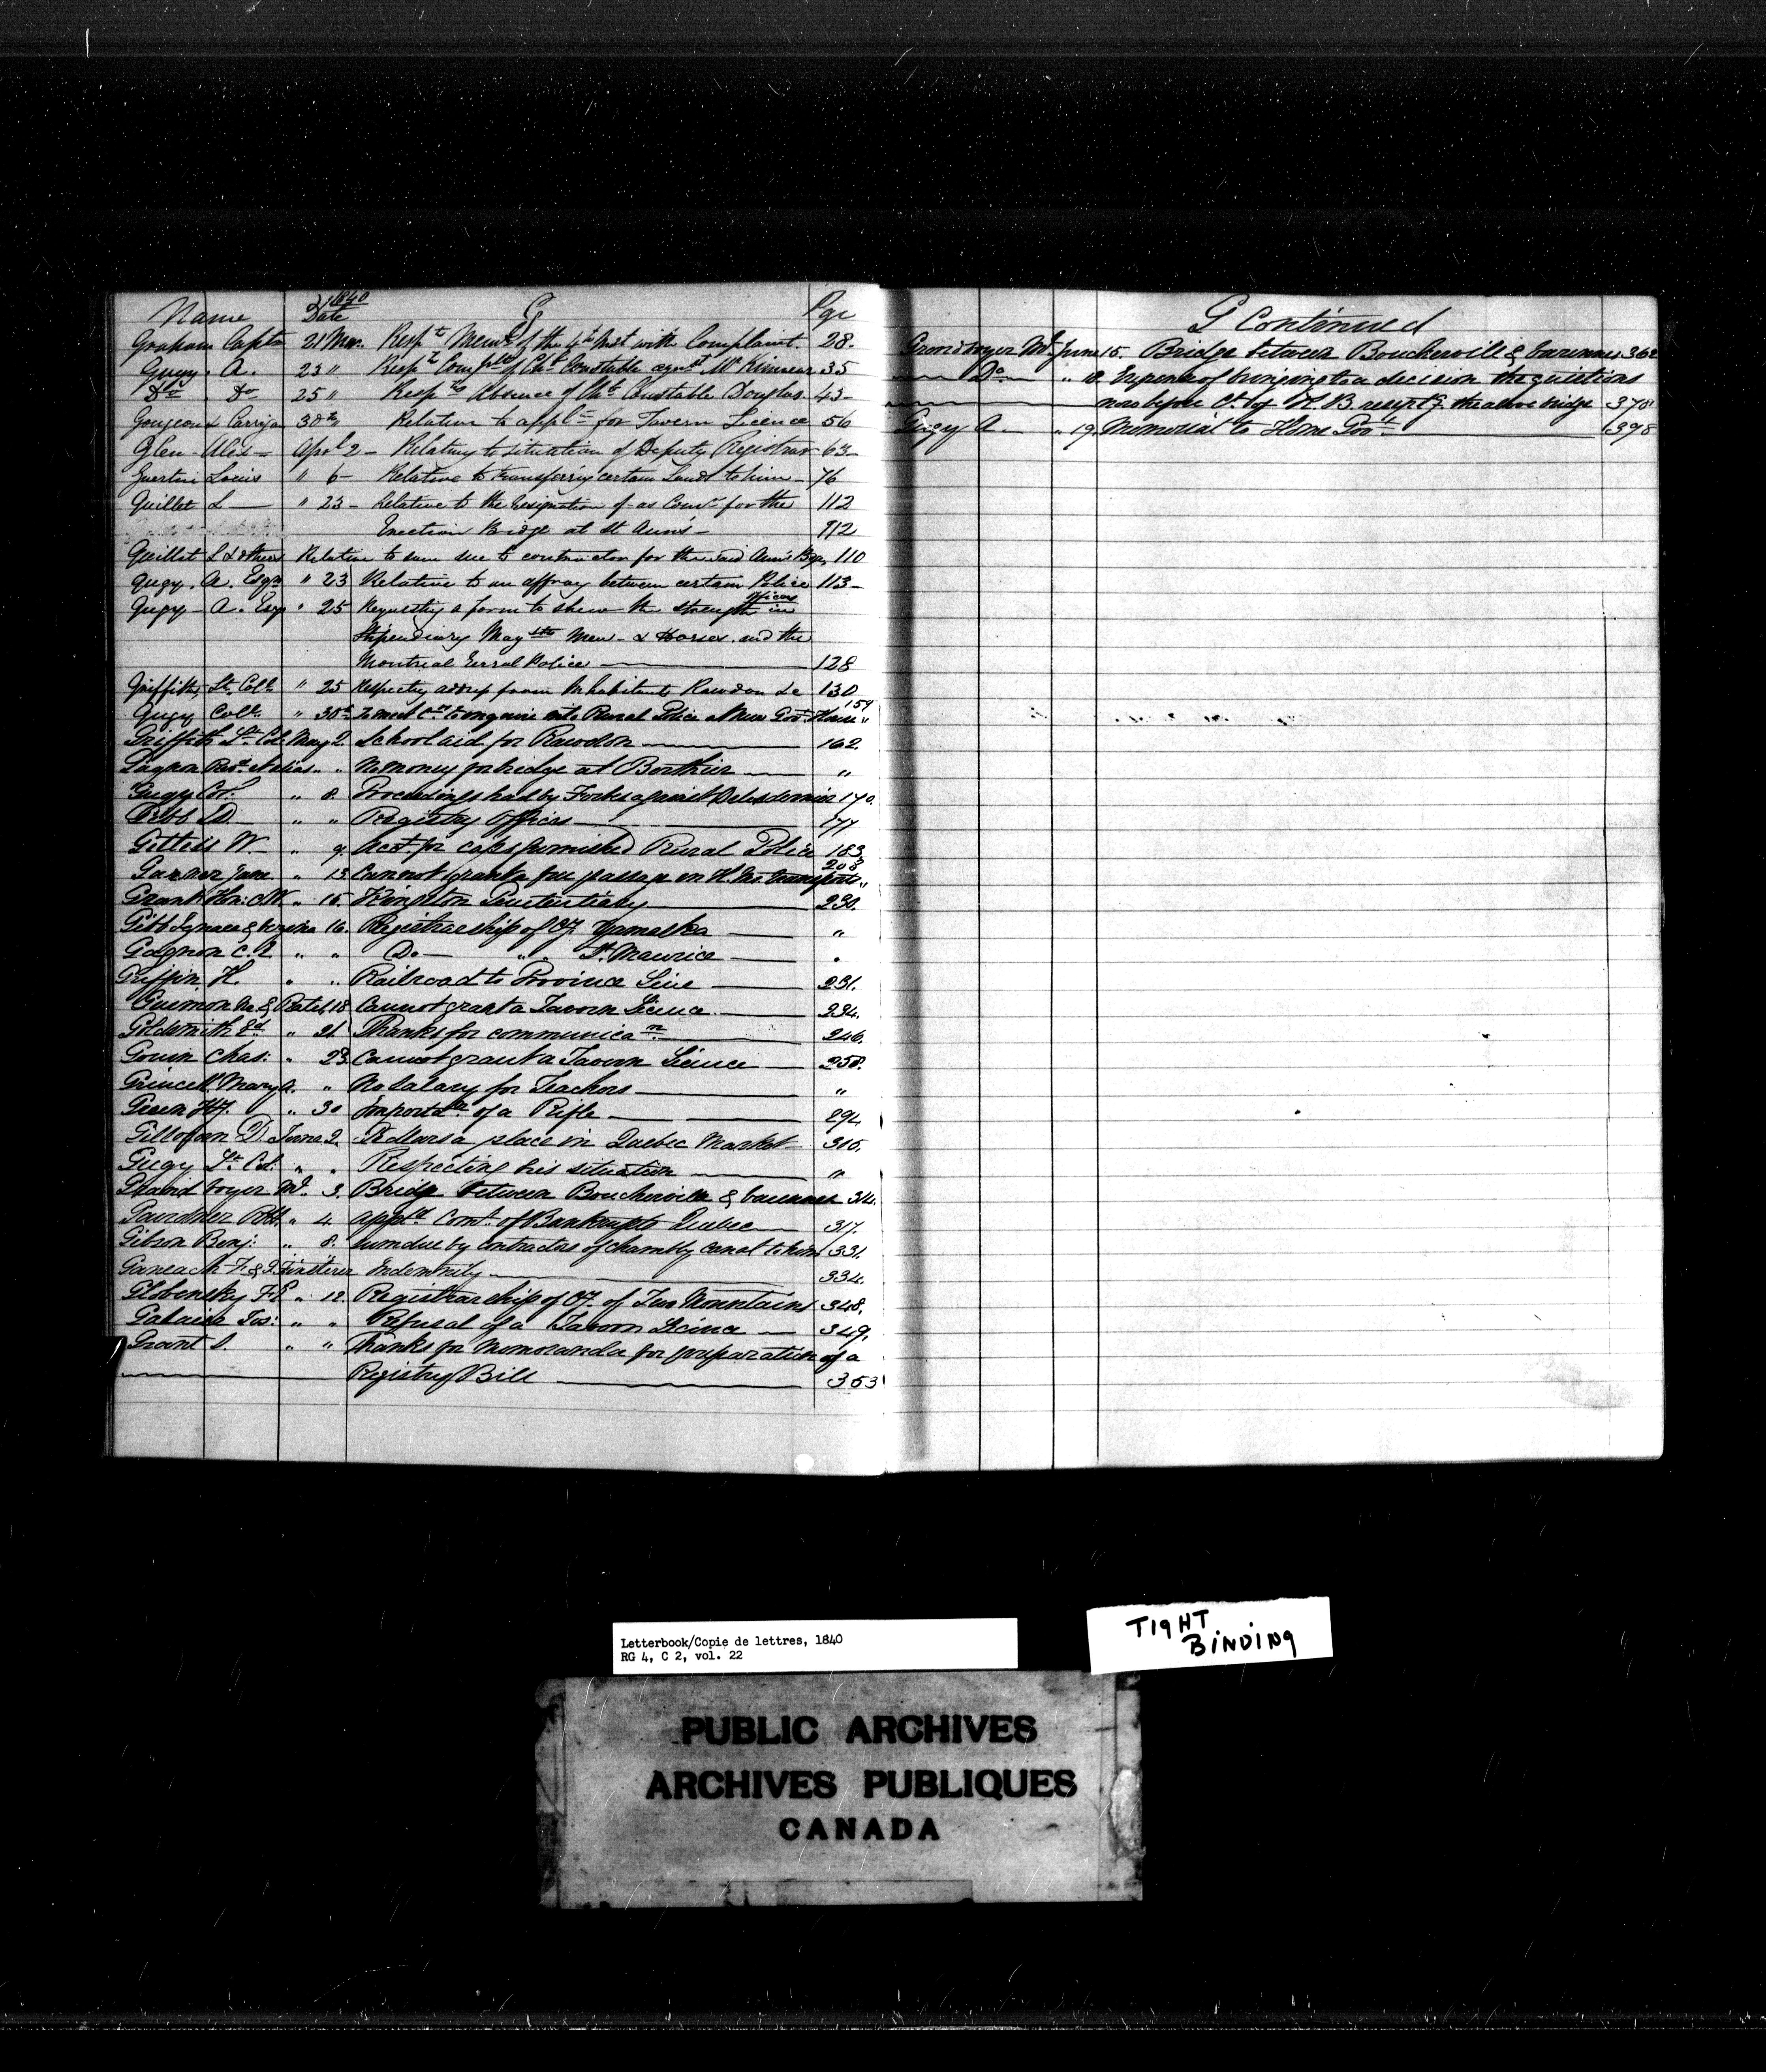 Name 1840 Date G Page
Graham Capta 21 Mar. Respt Memo of the 4th Inst with Complaint. 28.
Gugy. A. 23 " Respg Complts of Cht Constable agst Mr Kinnear 35
Do Do 25 " Respg the Absence of Cht Constable Douglas. 43
Gougeon & Carriga 30th Relative to appln for Tavern Licence 56
Glen Alex Apl 2 Relating to situation of Deputy Registrar 63
Guertin Louis " 6 Relative to transferring certain Lands to him 76
Guillet L " 23 Relative to the resignation of as Comr for the 112
Erection Bridge at St Ann's 112
Guillet L & others Relative to sum due to contractor for the said Ann's Bge 110
Gugy. A. Esqr " 23 Relative to an affray between certain Police 113
Gugy A. Esqr " 25 Requestg a form to shew the strength in officers
Stipendiary Magsttes Men & Horses. and the
Montreal Rural Police 128
Griffith, Lt. Coll. " 25 Respectg address from Inhabitants Rawdon &c 130
Gugy Coll. " 30th To meet to enquire into Rural Police at New Govt House " 159
Griffith Lt. Col. May 2. School aid for Rawdon 162
Gagnon Revd. " " No money for bridge at Berthier "
Gugy Col. " 8. Proceedings had by Forbes against Delesdernier 170.
Gibb D. " " Registry Offices 177
Gettess W. " 9. Acct. for caps furnished Rural Police 183
Garner Jane. " 13 Cannot grant a free passage in H. Ms transports " 208
Grant Hon: C W " 15. Kingston Penitentiary 230.
Gill Ignace & 16. Registrarship of Cy. Yamaska "
Gagnon C. E " " Do " " St. Maurice "
Griffin, H. " " Railroad to Province Line 231.
Guimon 18 Cannot grant a Tavern Licence 234.
Goldsmith Ed. " 21. Thanks for communican. 246.
Gouin Chas: " 23. Cannot grant a Tavern Licence 258.
Mary A. " No Salary for Teachers "
Green " 30 Importan of a Rifle 294
Gillofan D June 2. a place in Quebec Market 315.
Gugy Lt. Col. " " Respecting his situation "
Grand voyer Ml. 3. Bridge between Boucherville & Varennes 314.
Gairdner Robt. " 4. Appd. Comr. of Bankrupts Quebec 317.
Gibson Benj: " 8. Sum due by contractors of Chambly Canal to him 331.
Indemnity 334.
Globensky F. E " 12. Registrarship of Cy. of Two Mountains 348.
Jos: " " Refusal of a Tavern Licence 349.
Grant " " Thanks for Memoranda for preparation of a
Registry Bill 353
G Continued
Grand voyer Ml. June 15. Bridge between Boucherville & Varennes 362
Do " 18. Expense of bringing to a decision the questions
now before Ct. of K. B. respectg. the above bridge 378
Gugy A. " 19. Memorial to Home Govt. 398
Letterbook/Copie de lettres, 1840
RG 4, C 2, vol. 22
TIGHT
BINDING
PUBLIC ARCHIVES
ARCHIVES PUBLIQUES
CANADA